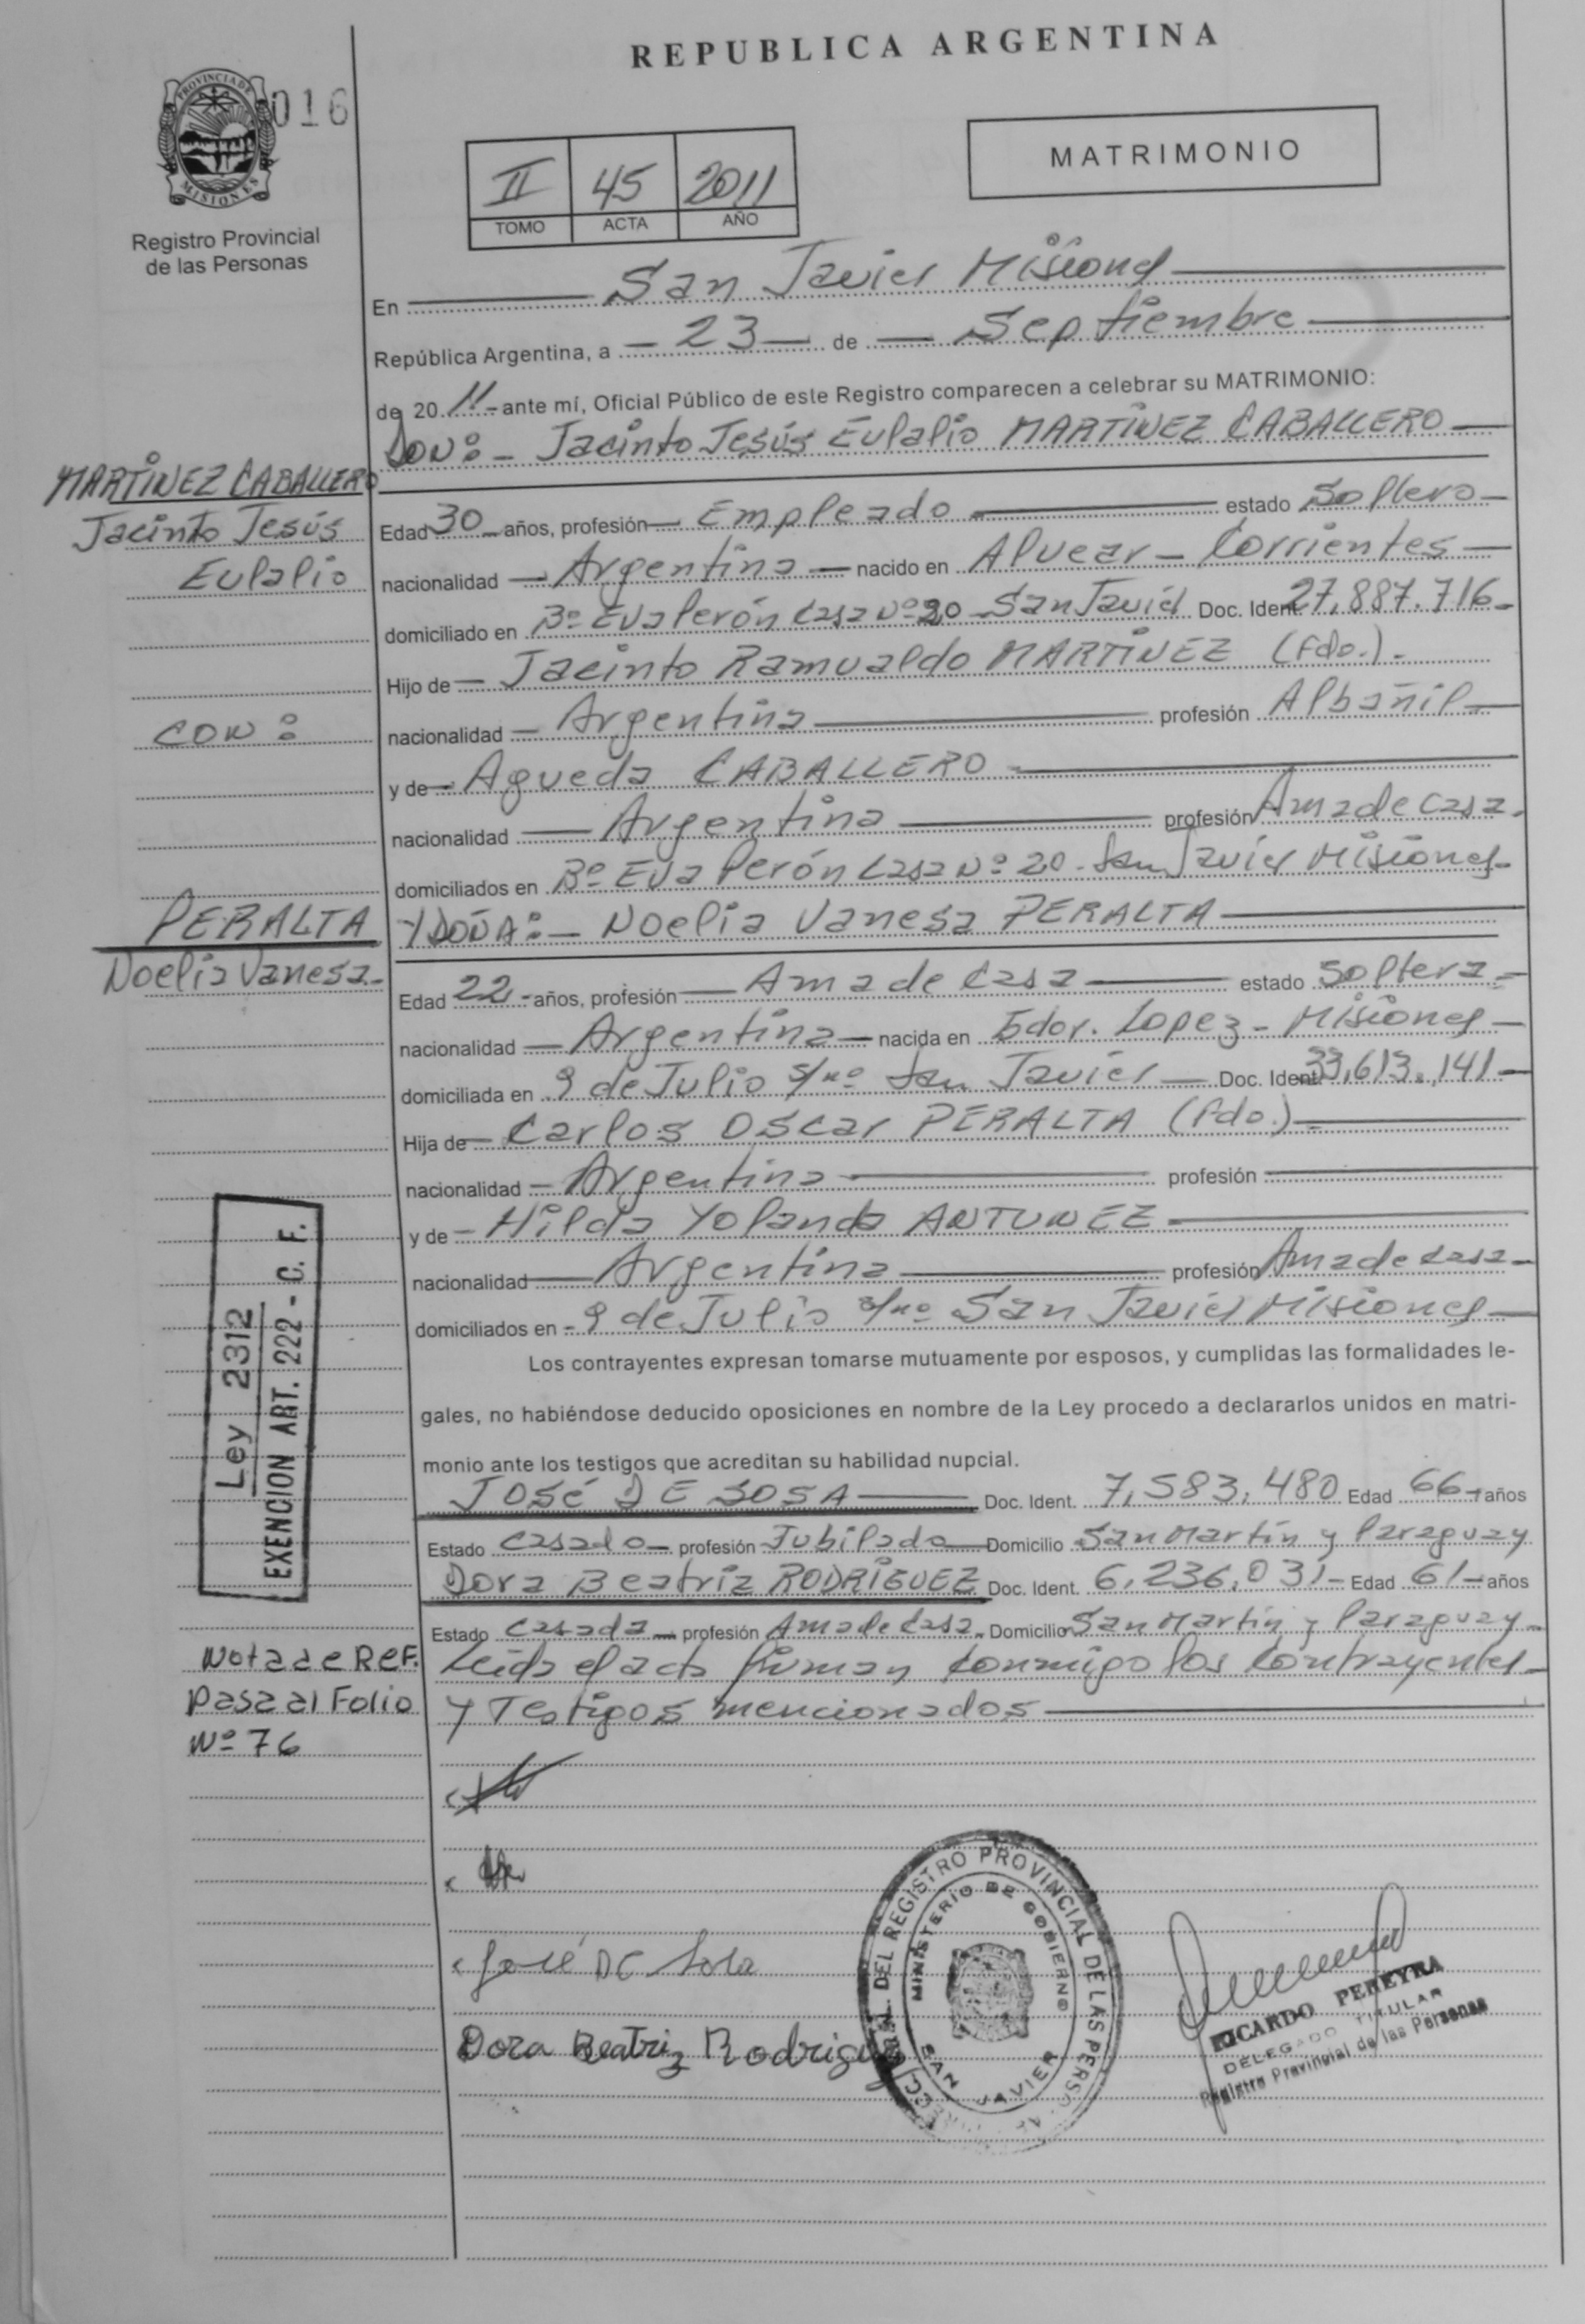 REPUBLICA ARGENTINA
PROVINCIA DE MISIONES
016
Registro Provincial
de las Personas
II 45 2011
TOMO ACTA AÑO
MATRIMONIO
En San Javier Misiones
República Argentina, a - 23 - de - Septiembre
de 20 11- ante mí, Oficial Público de este Registro comparecen a celebrar su MATRIMONIO:
DON:- Jacinto Jesús Eulalio MARTINEZ CABALLERO
MARTINEZ CABALLERO
Jacinto Jesús
Eulalio
con:
PERALTA
Noelia Vanesa-
Edad 30 años, profesión Empleado estado Soltero-
nacionalidad - Argentina - nacido en Alvear - Corrientes -
domiciliado en Bº Eva Perón Casa Nº 20 San Javier Doc. Ident. 27.887.716-
Hijo de - Jacinto Ramualdo MARTINEZ (fdo.)-
nacionalidad - Argentina profesión Albañil-
y de - Agueda CABALLERO -
nacionalidad - Argentina profesión Ama de casa.
domiciliados en Bº Eva Perón Casa Nº 20- San Javier Misiones-
Y DOÑA:- Noelia Vanesa PERALTA
Edad 22- años, profesión - Ama de Casa estado Soltera-
nacionalidad - Argentina - nacida en Gdor. Lopez - Misiones -
domiciliada en 9 de Julio s/nº San Javier - Doc. Ident. 33.613.141-
Hija de - Carlos Oscar PERALTA (fdo.)-
nacionalidad - Argentina profesión
y de - Hilda Yolanda ANTUNEZ -
nacionalidad - Argentina profesión Ama de casa-
domiciliados en - 9 de Julio s/nº San Javier Misiones-
Los contrayentes expresan tomarse mutuamente por esposos, y cumplidas las formalidades le-
gales, no habiéndose deducido oposiciones en nombre de la Ley procedo a declararlos unidos en matri-
monio ante los testigos que acreditan su habilidad nupcial.
JOSÉ DE SOSA Doc. Ident. 7.583.480 Edad 66- años
Estado Casado- profesión Jubilado Domicilio San Martín y Paraguay
Dora Beatriz RODRIGUEZ Doc. Ident. 6.236.031- Edad 61- años
Estado Casada- profesión Ama de Casa. Domicilio San Martín y Paraguay-
Leida el acta firman conmigo los Contrayentes-
y Testigos mencionados
Ley 2312
EXENCION ART. 222 - C. F.
Nota de Ref.
Pasa al Folio
Nº 76
José De Sosa
Dora Beatriz Rodriguez
DEL REGISTRO PROVINCIAL DE LAS
MINISTERIO DE GOBIERNO
SAN JAVIER
RICARDO PEREYRA
DELEGADO TITULAR
Registro Provincial de las Personas